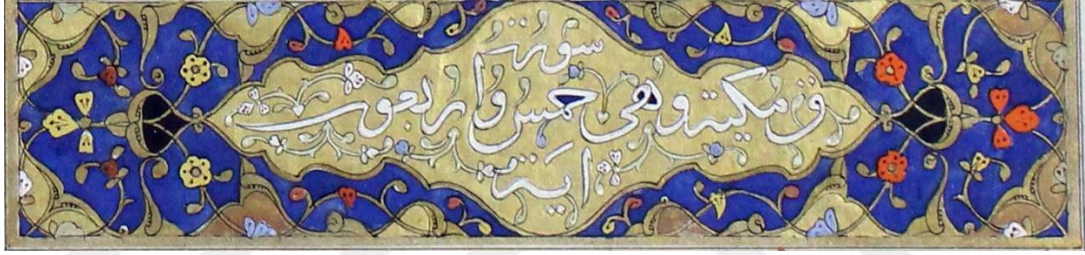 سورة
ق مكية وهي خمس واربعون
اية